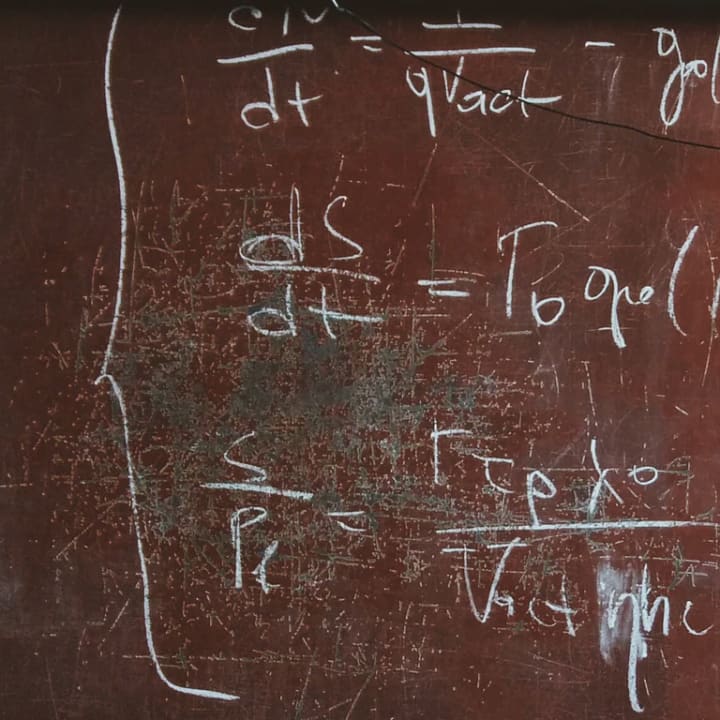 dN/dt = I/qVact - go(
dS/dt = Γo go (
S/Pf = Γτpλo/Vact ηhc